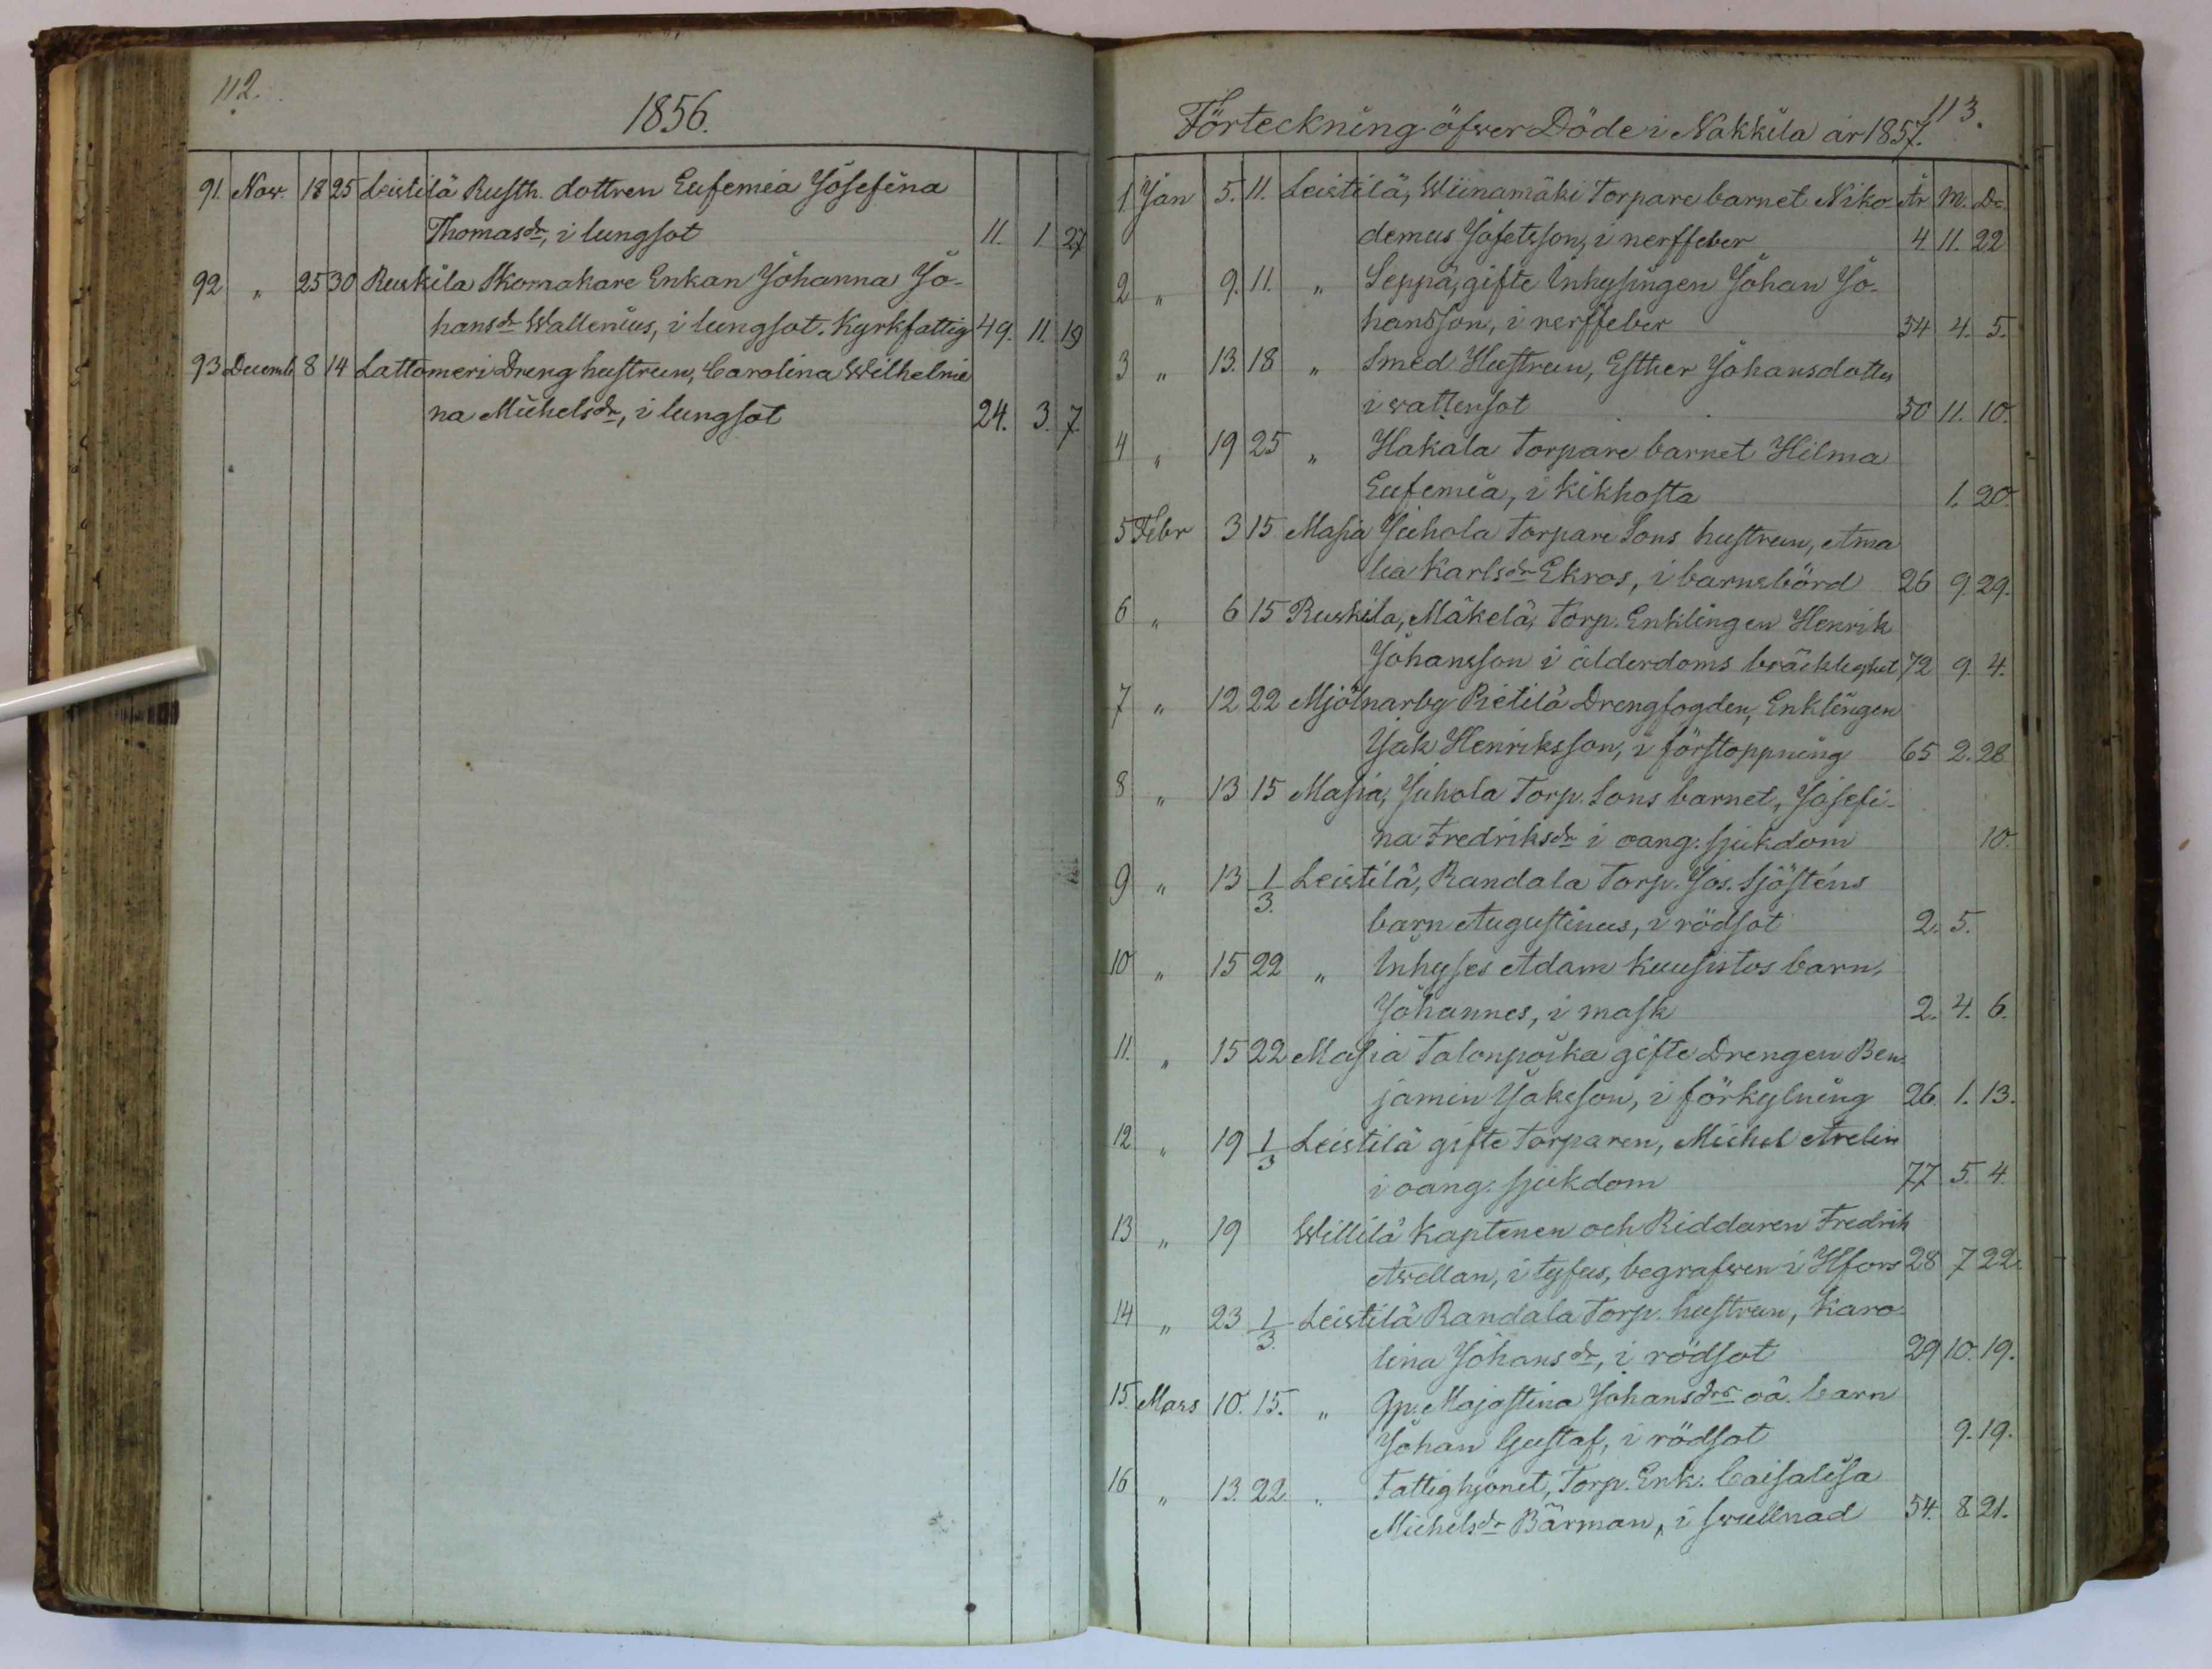 112.
1856.
91. Nov. 18 25 Leistilä Rusth. dottren Eufemia Josefina
Thomasdr, i lungsot 11. 1 27
92 " 25 30 Ruskila Skomakare Enkan Johanna Jo-
hansdr Wallenius, i lungsot. Kyrkfattig 49. 11. 19
93 Decemb 8 14 Lattomeri Dreng hustrun, Carolina Wilhelmi
na Michelsdr, i lungsot 24. 3. 7.
113.
Förteckning öfwer Döde i Nakkila år 1857.
1 Jan 5. 11. Leistilä, Wiinamäki Torpare barnet Niko- År M. Da.
demus Jofetsson, i nerffeber 4 11. 22
2 " 9. 11. " Seppä, gifte Inhysingen Johan Jo-
hansson, i nerffeber 54 4. 5.
3 " 13. 18 " Smed Hustrun, Esther Johansdotter
i wattensot 50 11. 10.
4 " 19 25 " Hakala Torpare barnet Hilma
Eufemia, i kikhosta 1. 20.
5 Febr 3 15 Masia Juhola Torpare Sons hustrun, Ama
lia Karlsdr Ekros, i barnsbörd 26 9 29.
6 " 6 15 Ruskila, Mäkelä, Torp. Enklingen Henrik
Johansson i ålderdoms bräcklighet 72 9. 4.
7 " 12 22 Mjölnarby Pietilä Drengfogden, Enklingen
Jak Henriksson, i förstoppning 65 2. 28
8 " 13 15 Masia, Juhola Torp. Sons barnet, Josefi-
na Fredriksdr i oang. sjukdom 10.
9 " 13 1/3. Leistilä, Randala Torp. Jos. Sjösténs
barn Augustinus, i rödsot 2. 5.
10 " 15 22 " Inhyses Adam Kuusistos barn,
Johannes, i mask 2. 4. 6.
11. " 15 22 Masia Talonpoika gifte Drengen Ben-
jamin Jaksson, i förkylning 26. 1. 13.
12 " 19 1/3 Leistilä gifte Torparen, Michel Arelin
i oang. sjukdom 77 5. 4.
13 " 19 Willilä Kaptenen och Riddaren Fredrik
Avellan, i tyfus, begrafwen i Hfors 28 7 22.
14 " 23 1/3. Leistilä Randala Torp. hustrun, Karo-
lina Johansdr, i rödsot 29 10. 19.
15. Mars 10. 15. " Qp. Majastina Johansdrs oä. barn
Johan Gustaf, i rödsot 9. 19.
16 " 13. 22. " Fattighjonet, Torp. Enk. Caisalisa
Michelsdr Bärman, i swullnad 54. 8 21.